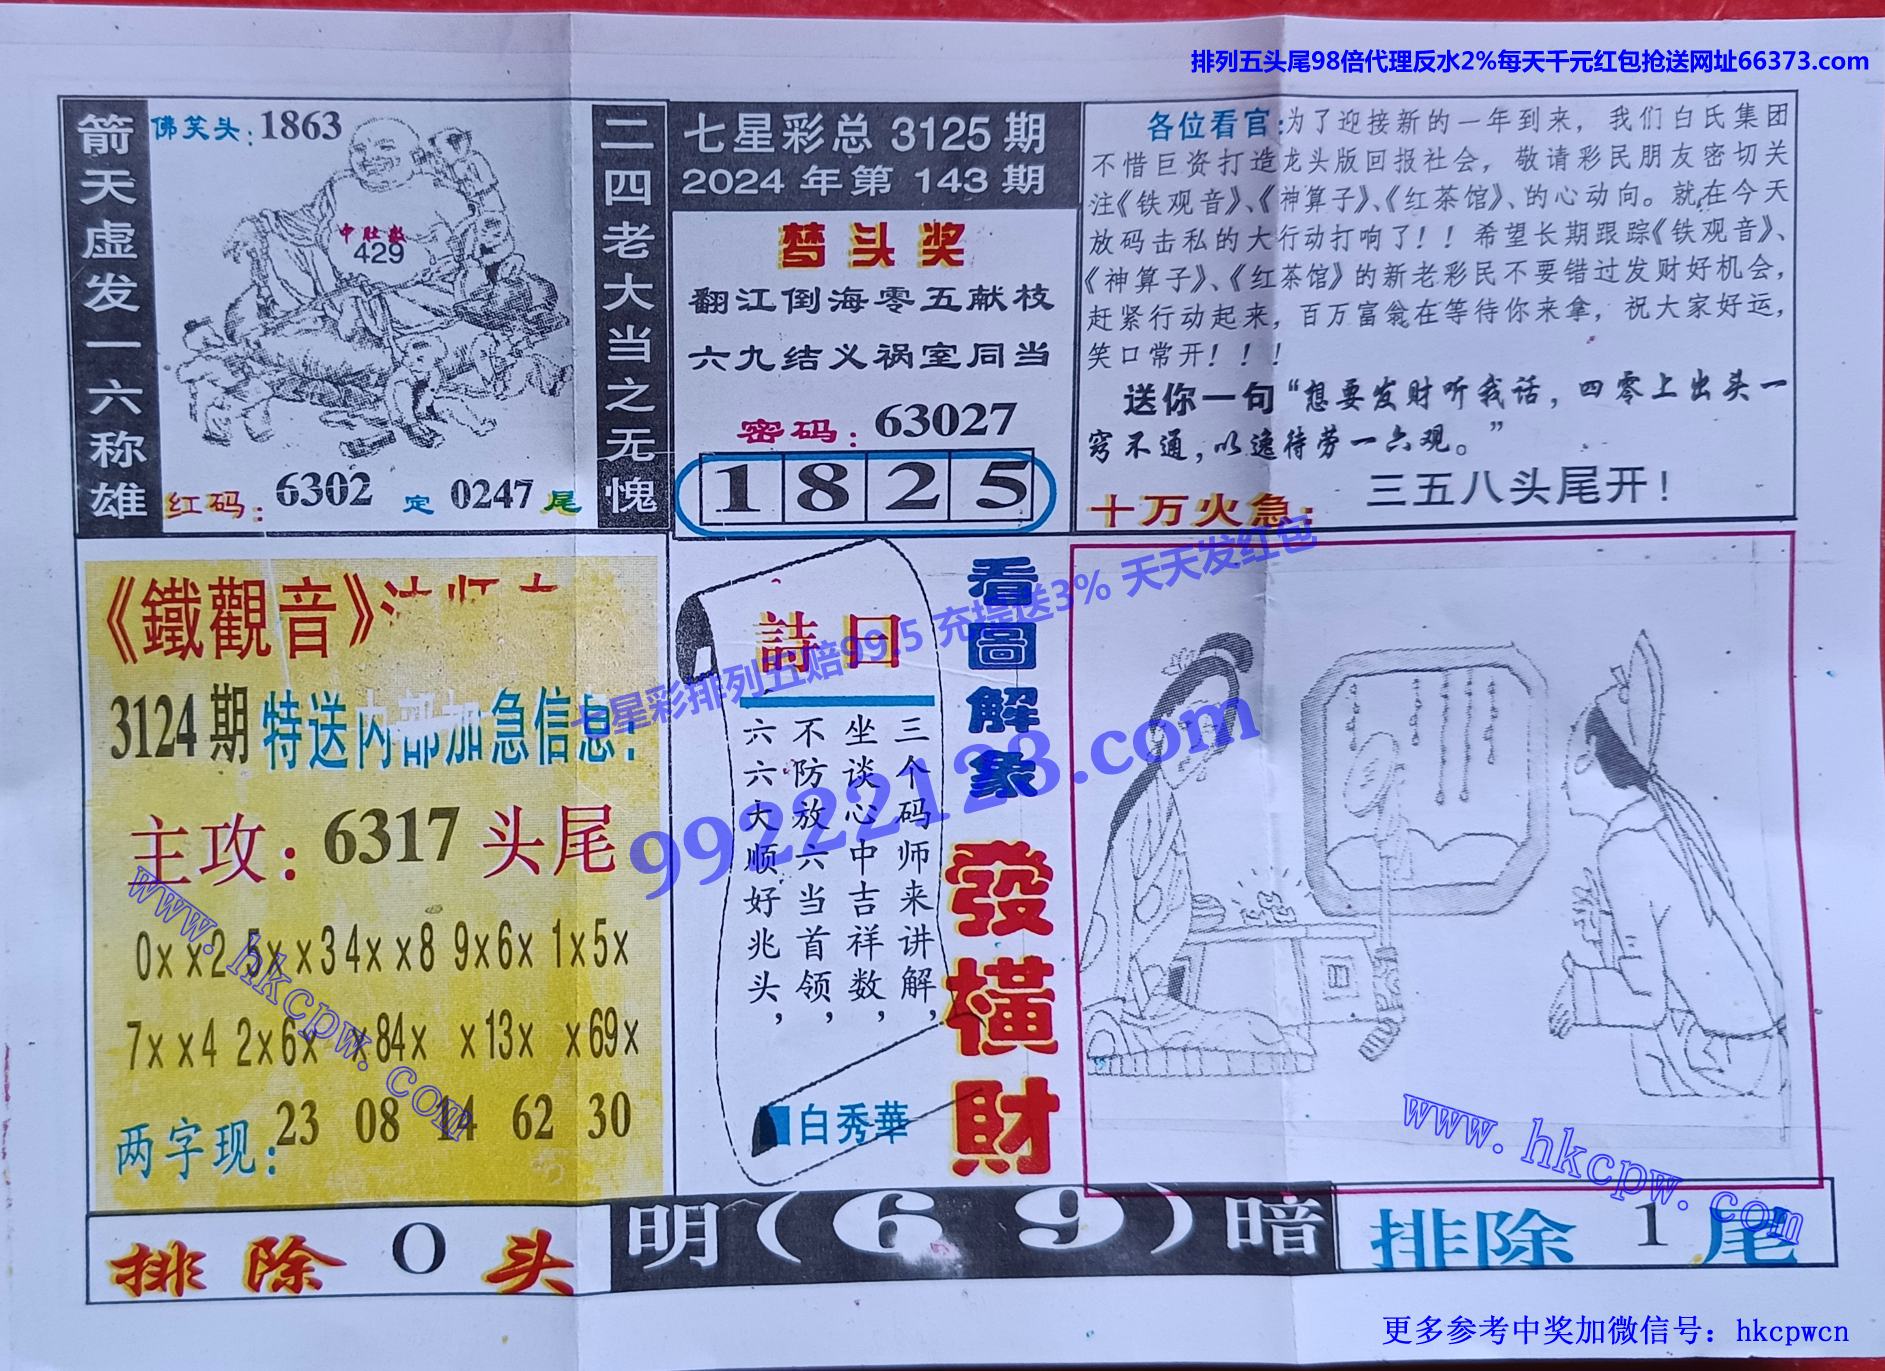 排列五头尾98倍代理反水2%每天千元红包抢送网址66373.com
箭天虚发一六称雄
佛笑头：1863
中肚数
429
红码：6302 定 0247 尾
二四老大当之无愧
七星彩总 3125 期
2024 年第 143 期
梦头奖
翻江倒海零五献枝
六九结义祸室同当
密码：63027
1 8 2 5
各位看官：为了迎接新的一年到来，我们白氏集团
不惜巨资打造龙头版回报社会，敬请彩民朋友密切关
注《铁观音》、《神算子》、《红茶馆》、的心动向。就在今天
放码击私的大行动打响了！！希望长期跟踪《铁观音》、
《神算子》、《红茶馆》的新老彩民不要错过发财好机会，
赶紧行动起来，百万富翁在等待你来拿，祝大家好运，
笑口常开！！！
送你一句“想要发财听我话，四零上出头一
窍不通，以逸待劳一六观。”
十万火急：三五八头尾开！
《鐵觀音》
3124 期 特送内部加急信息：
主攻：6317 头尾
0××2 5××3 4××8 9×6× 1×5×
7××4 2×6× ×84× ×13× ×69×
两字现：23 08 14 62 30
詩曰
三个码师来讲解，
坐谈心中吉祥数，
不防放六当首领，
六六大顺好兆头，
白秀華
看圖解象
發橫財
七星彩排列五赔99.5 充提送3% 天天发红包
99222128.com
www.hkcpw.com
www.hkcpw.com
排除 0 头
明（6 9）暗
排除 1 尾
更多参考中奖加微信号：hkcpwcn